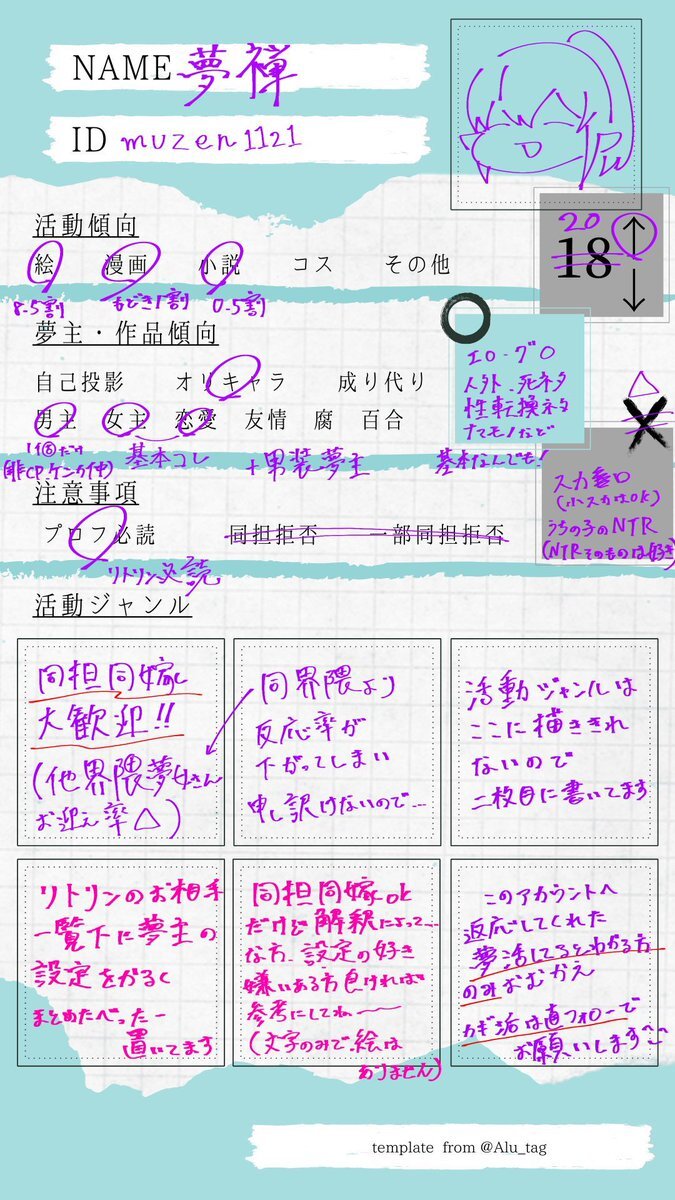 NAME 夢禅
ID muzen1121
活動傾向
絵 漫画 小説 コス その他
8.5割 もどき1割 0.5割
20
18
↑
↓
夢主・作品傾向
自己投影 オリキャラ 成り代り
男主 女主 恋愛 友情 腐 百合
(非CP.ケンカ仲)
基本コレ
+男装夢主
エロ・グロ
人外、死ネタ
性転換ネタ
ナマモノなど
基本なんでも!
△
注意事項
プロフ必読 同担拒否 一部同担拒否
リトリン必読
(小スカはok)
うちの子のNTR
(NTRそのものは好き)
活動ジャンル
同担同嫁し
大歓迎!!
(他界隈夢女さん
お迎え率△)
同界隈より
反応率が
下がってしまい
申し訳けないので…
活動ジャンルは
ここに描ききれ
ないので
二枚目に書いてます
リトリンのお相手
一覧下に夢主の
設定をかるく
まとめたぺったー
置いてます
同担同嫁ok
だけど解釈によって…
な方、設定の好き
嫌いある方良ければ
参考にしてね〜
(文字のみで絵は
ありません)
このアカウントへ
返応してくれた
夢活してるとわかる方
のみおむかえ
カギ活は直フォローで
お願いします
template from @Alu_tag